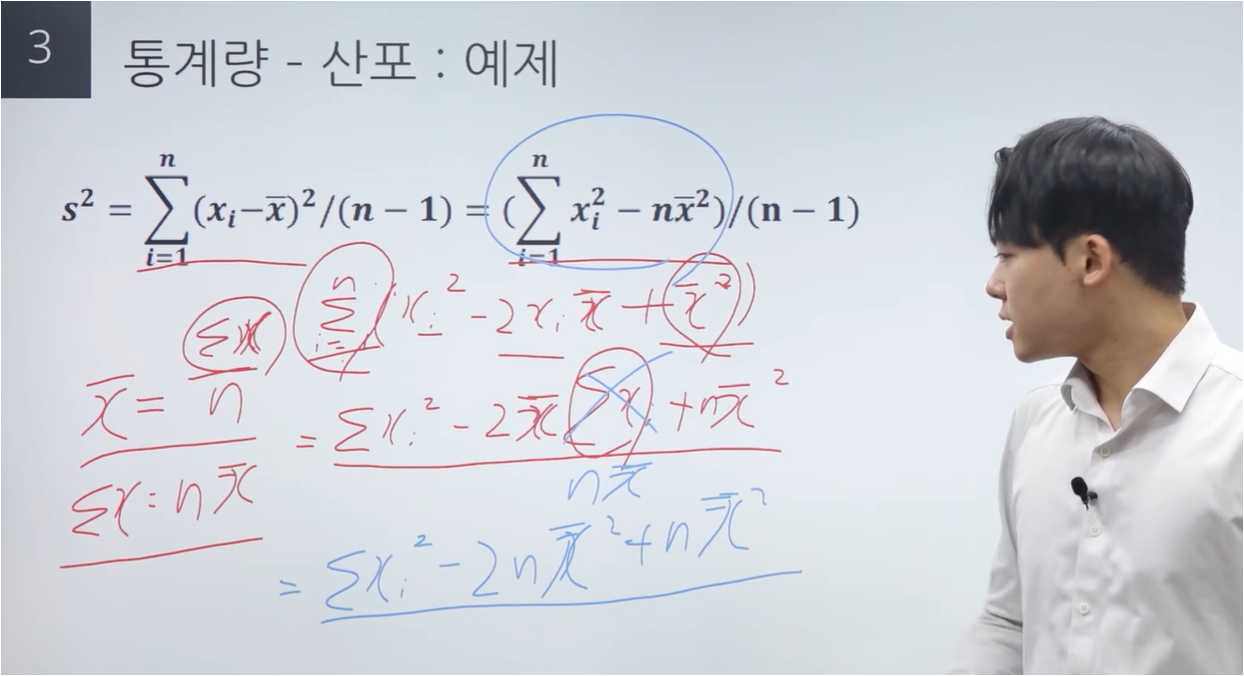 3
통계량 - 산포 : 예제
s² = ∑ⁿᵢ₌₁(xᵢ−x̄)²/(n − 1) = (∑ⁿᵢ₌₁ xᵢ² − nx̄²)/(n − 1)
∑ⁿᵢ₌₁(xᵢ² − 2xᵢx̄ + x̄²)
x̄ = ∑x/n
= ∑xᵢ² − 2x̄∑x + nx̄²
∑x = nx̄
nx̄
= ∑xᵢ² − 2nx̄² + nx̄²